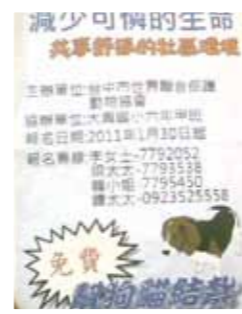 減少可憐的生命
共享舒適的社區環境
主辦單位:台中市世界聯合保護
動物協會
協辦單位:大 國小六年甲班
報名日期:2011年1月30日
報名專線:李女士-7792052
太太-7793538
小姐-7795450
太太-0923525558
免費
狗貓結紮